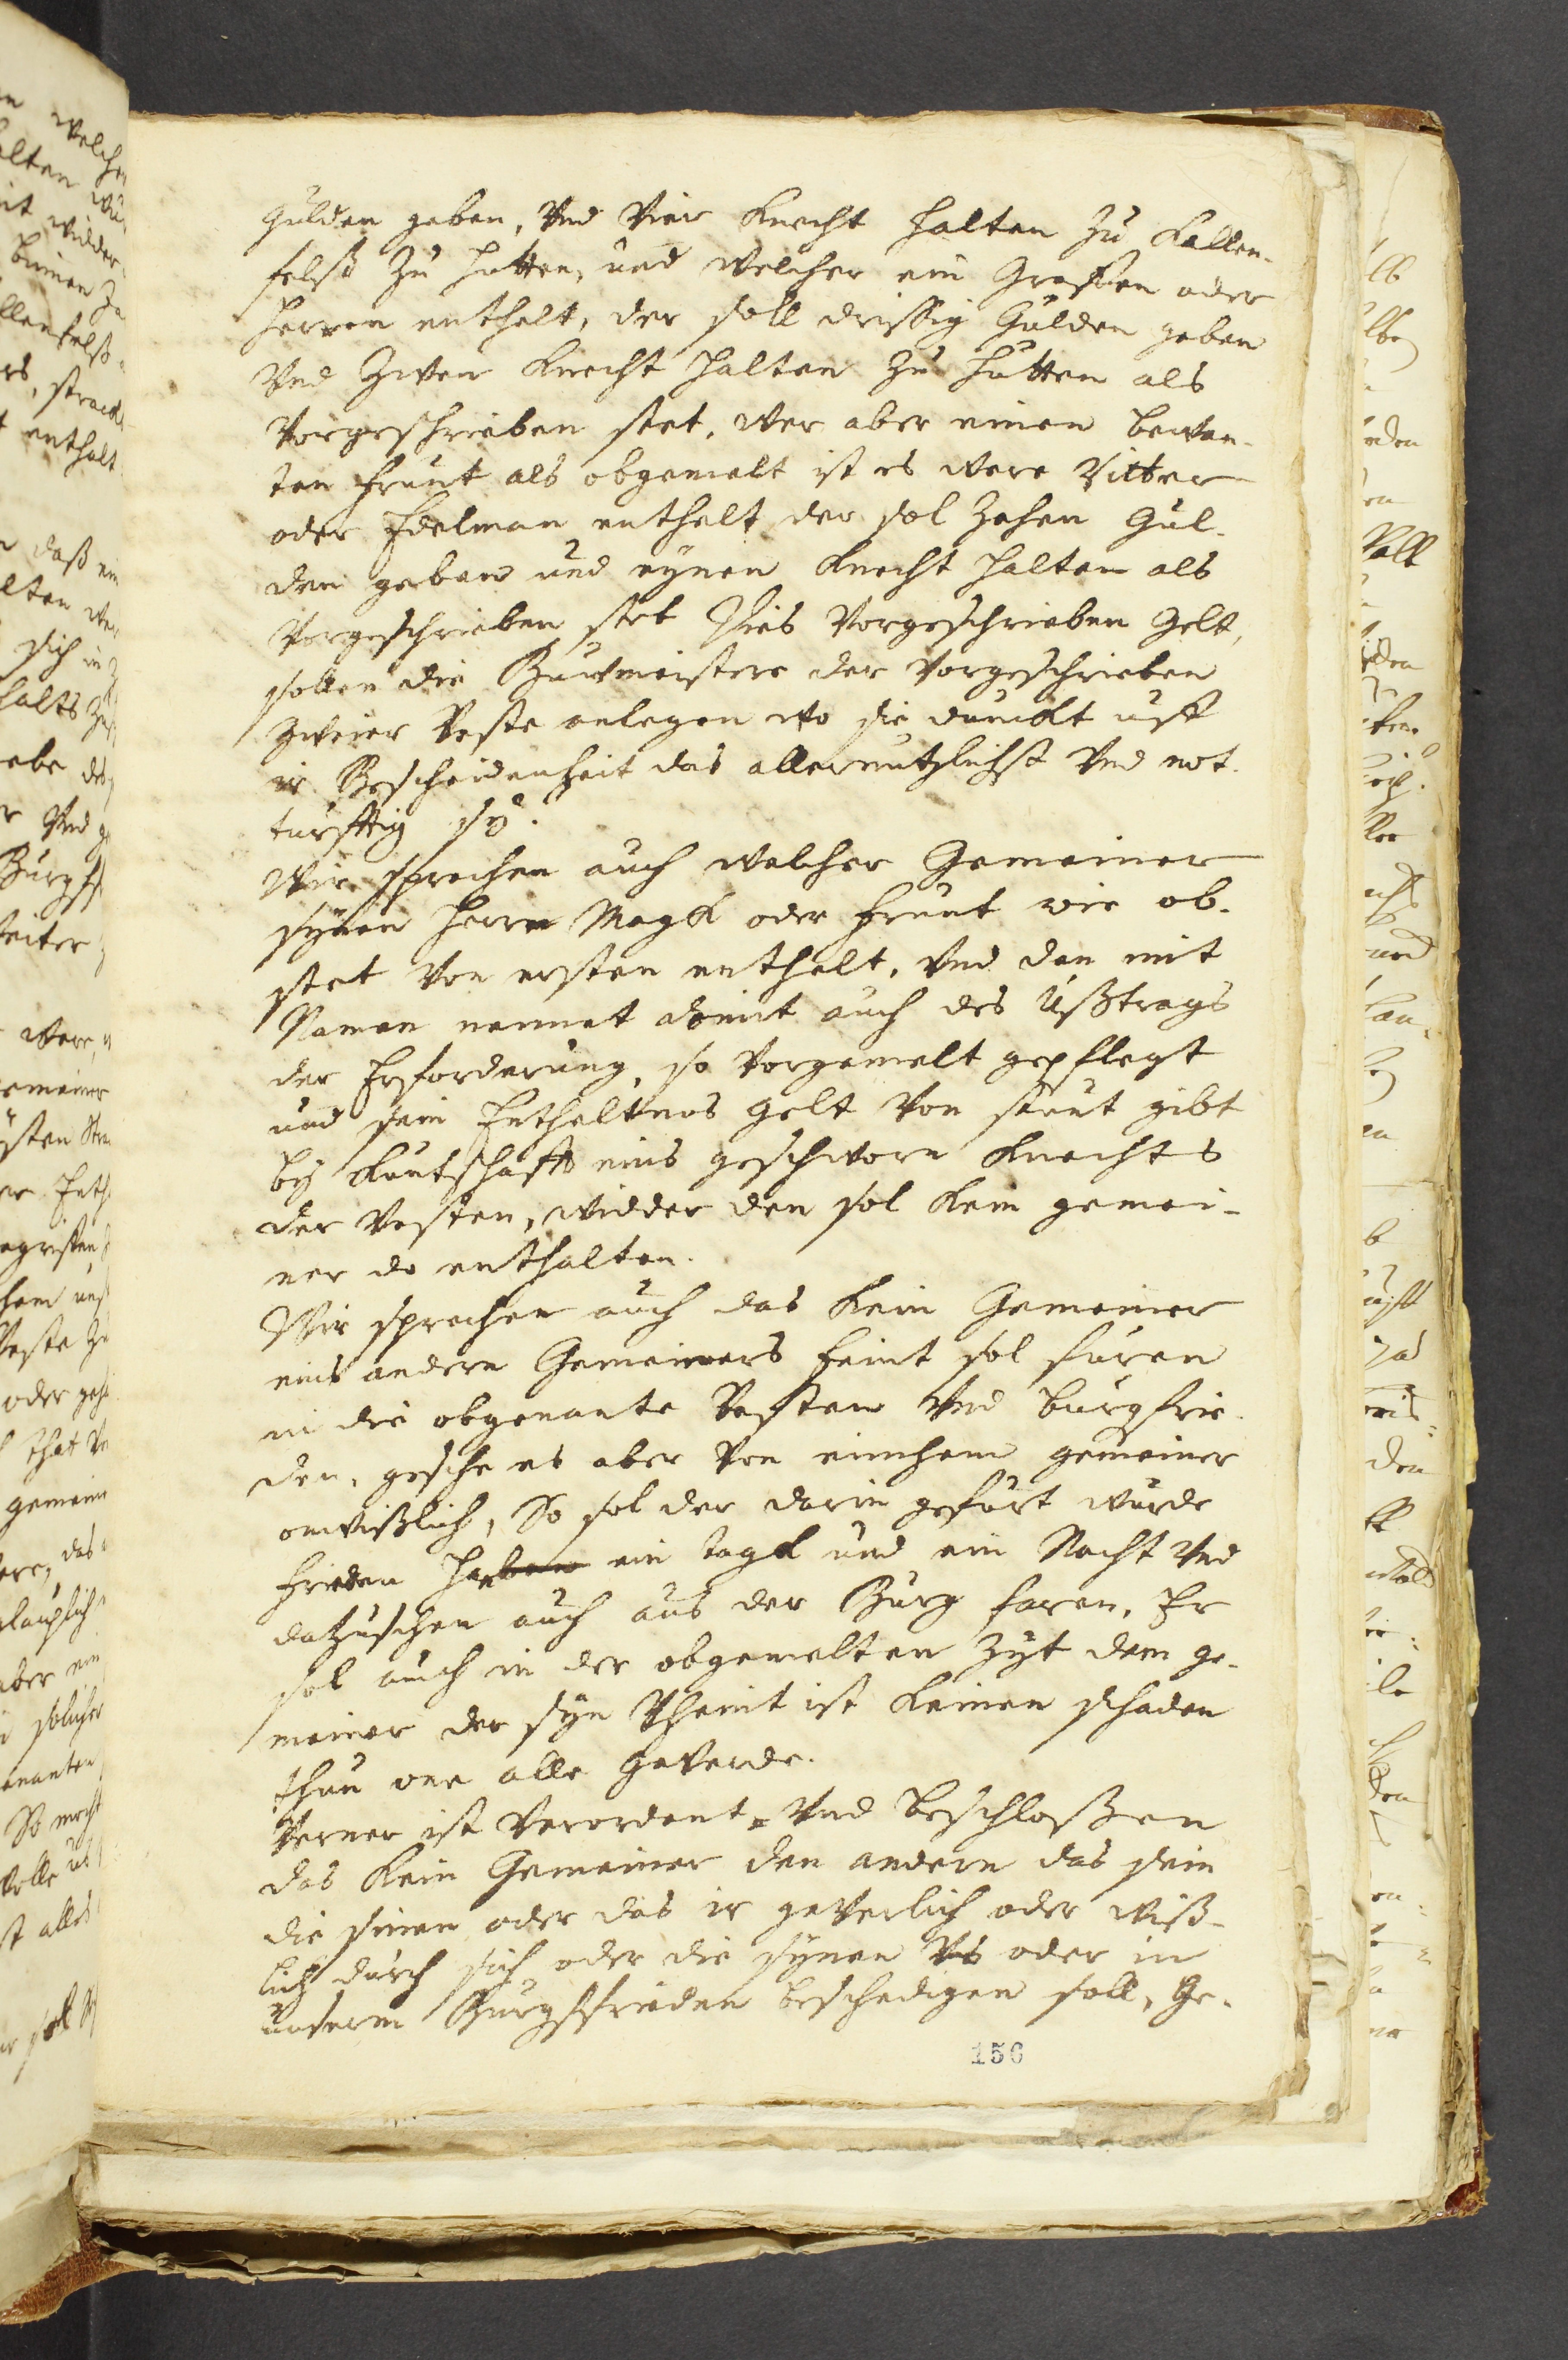 Gulden geben, Vnd Vier Knecht halten zu Kallen-
felß zu hutten, und welcher ein Graffen oder
Herren enthelt, der soll drissig Gulden geben
Vnd Zwen Knecht halten zu hutten als
Vorgeschrieben stet, wer aber einen bewan-
ten frunt als obgemelt ist es were Ritter
oder Edelman enthelt der sol Zehen Gul-
den geben und eynen Knecht halten als
Vorgeschrieben stet Dies Vorgeschrieben Gelt,
sollen die Buwmeistere der Vorgeschrieben
Zweier Veste anlegen wo sie dunckt uff
ir Bescheidenheit das allernutzlichst Vnd not-
turfftig sy.
Wir sprechen auch welcher Gemeiner
synen Herrn Magk oder frunt wie ob-
stet Von ersten enthelt, Vnd den mit
Namen nennet domit auch des Ußtrags
der Erforderung, so Vorgemelt gepflegt
und sein Entheltnos Gelt Von stunt gibt
by Kuntschafft eins geschworn Knechts
der Vesten, widder den sol Kein gemei-
ner do enthalten.
Wir sprechen auch das Kein Gemeiner
eins andern Gemeiners feint sol furen
in die obgenante Vesten Vnd burgfrie-
den, gesche es aber Von einchem gemeiner
onwißlich, So sol der darin gefurt wurde
frieden haben ein tagk und ein Nacht Vnd
datzuschen auch aus der Burg faren, Er
sol auch in der obgemelten Zyt dem ge-
meiner der syn Vheint ist Keinen schaden
thun one alle Geverde.
Verner ist Verordent Vnd beschloßen
das Kein Gemeiner den andern das sein
die sinen oder das ir geverlich oder wiß-
lich durch sich oder die synen Vs oder in
unserm Burgffrieden beschedigen soll, Ge-
156